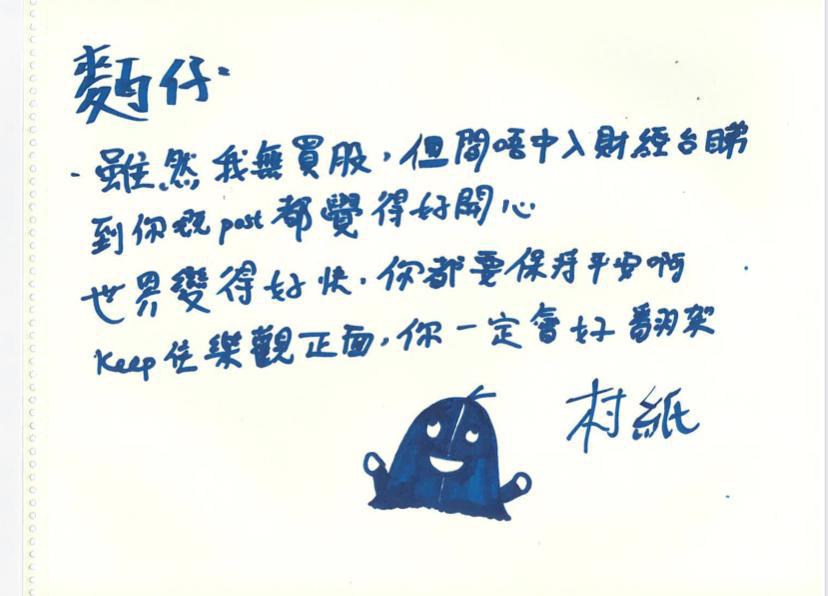 麵仔:
- 雖然我無買股,但間唔中入財經台睇
到你嘅post都覺得好開心
世界變得好快,你都要保持平安啊
Keep住樂觀正面,你一定會好翻架
村紙